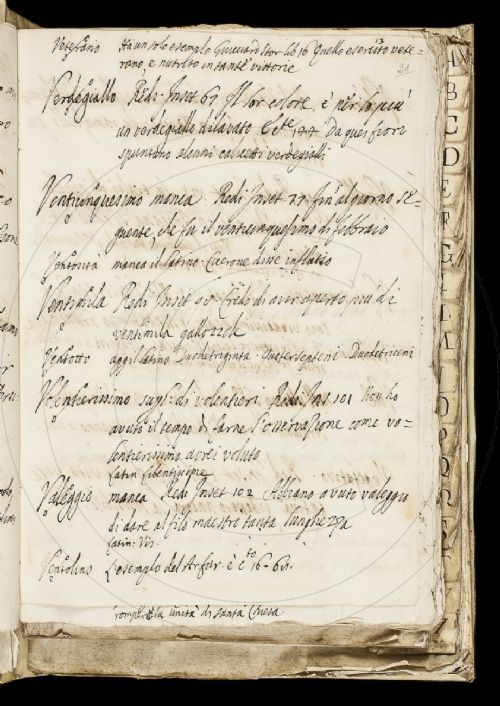 Veterano Ha un solo esemplo Guicciard Stor lib 16 Quello esercito vete=
rano e nutrito in tante vittorie
21
Verdegiallo Redi Inset 67 Il lor colore, è per lo più
un verdegiallo dilavato E cte 144 Da quei fiori
spuntano alcuni calicetti verdegialli
Venticinquesimo manca Redi Inset 27 fin' al giorno se=
guente, che fu il venticinquesimo di febbraio
Ventosità manca il latino Cicerone dice inflatio
Ventimila Redi Inset Credo di aver aperto più di
ventimila gallozzole
Ventotto agg: latino Duodetriginta. Quatersepteni Duodetriceni
Volentierissimo supl: di volentieri Redi Ins 101 Non ho
avuto il tempo di farne l'osservazione come vo=
lentierissimo avrei voluto
Latin Libentissime
Valeggio manca Redi Inset 102 Abbiano avuto valeggio
di dare al filo maestro tanta lunghezza
Latin: Vis.
Ventolino L'esemplo del è cto 16. 64.
rompere la unità di Santa Chiesa
A
B
C
D
E
F
G
I
L
M
O
P
Q
R
S